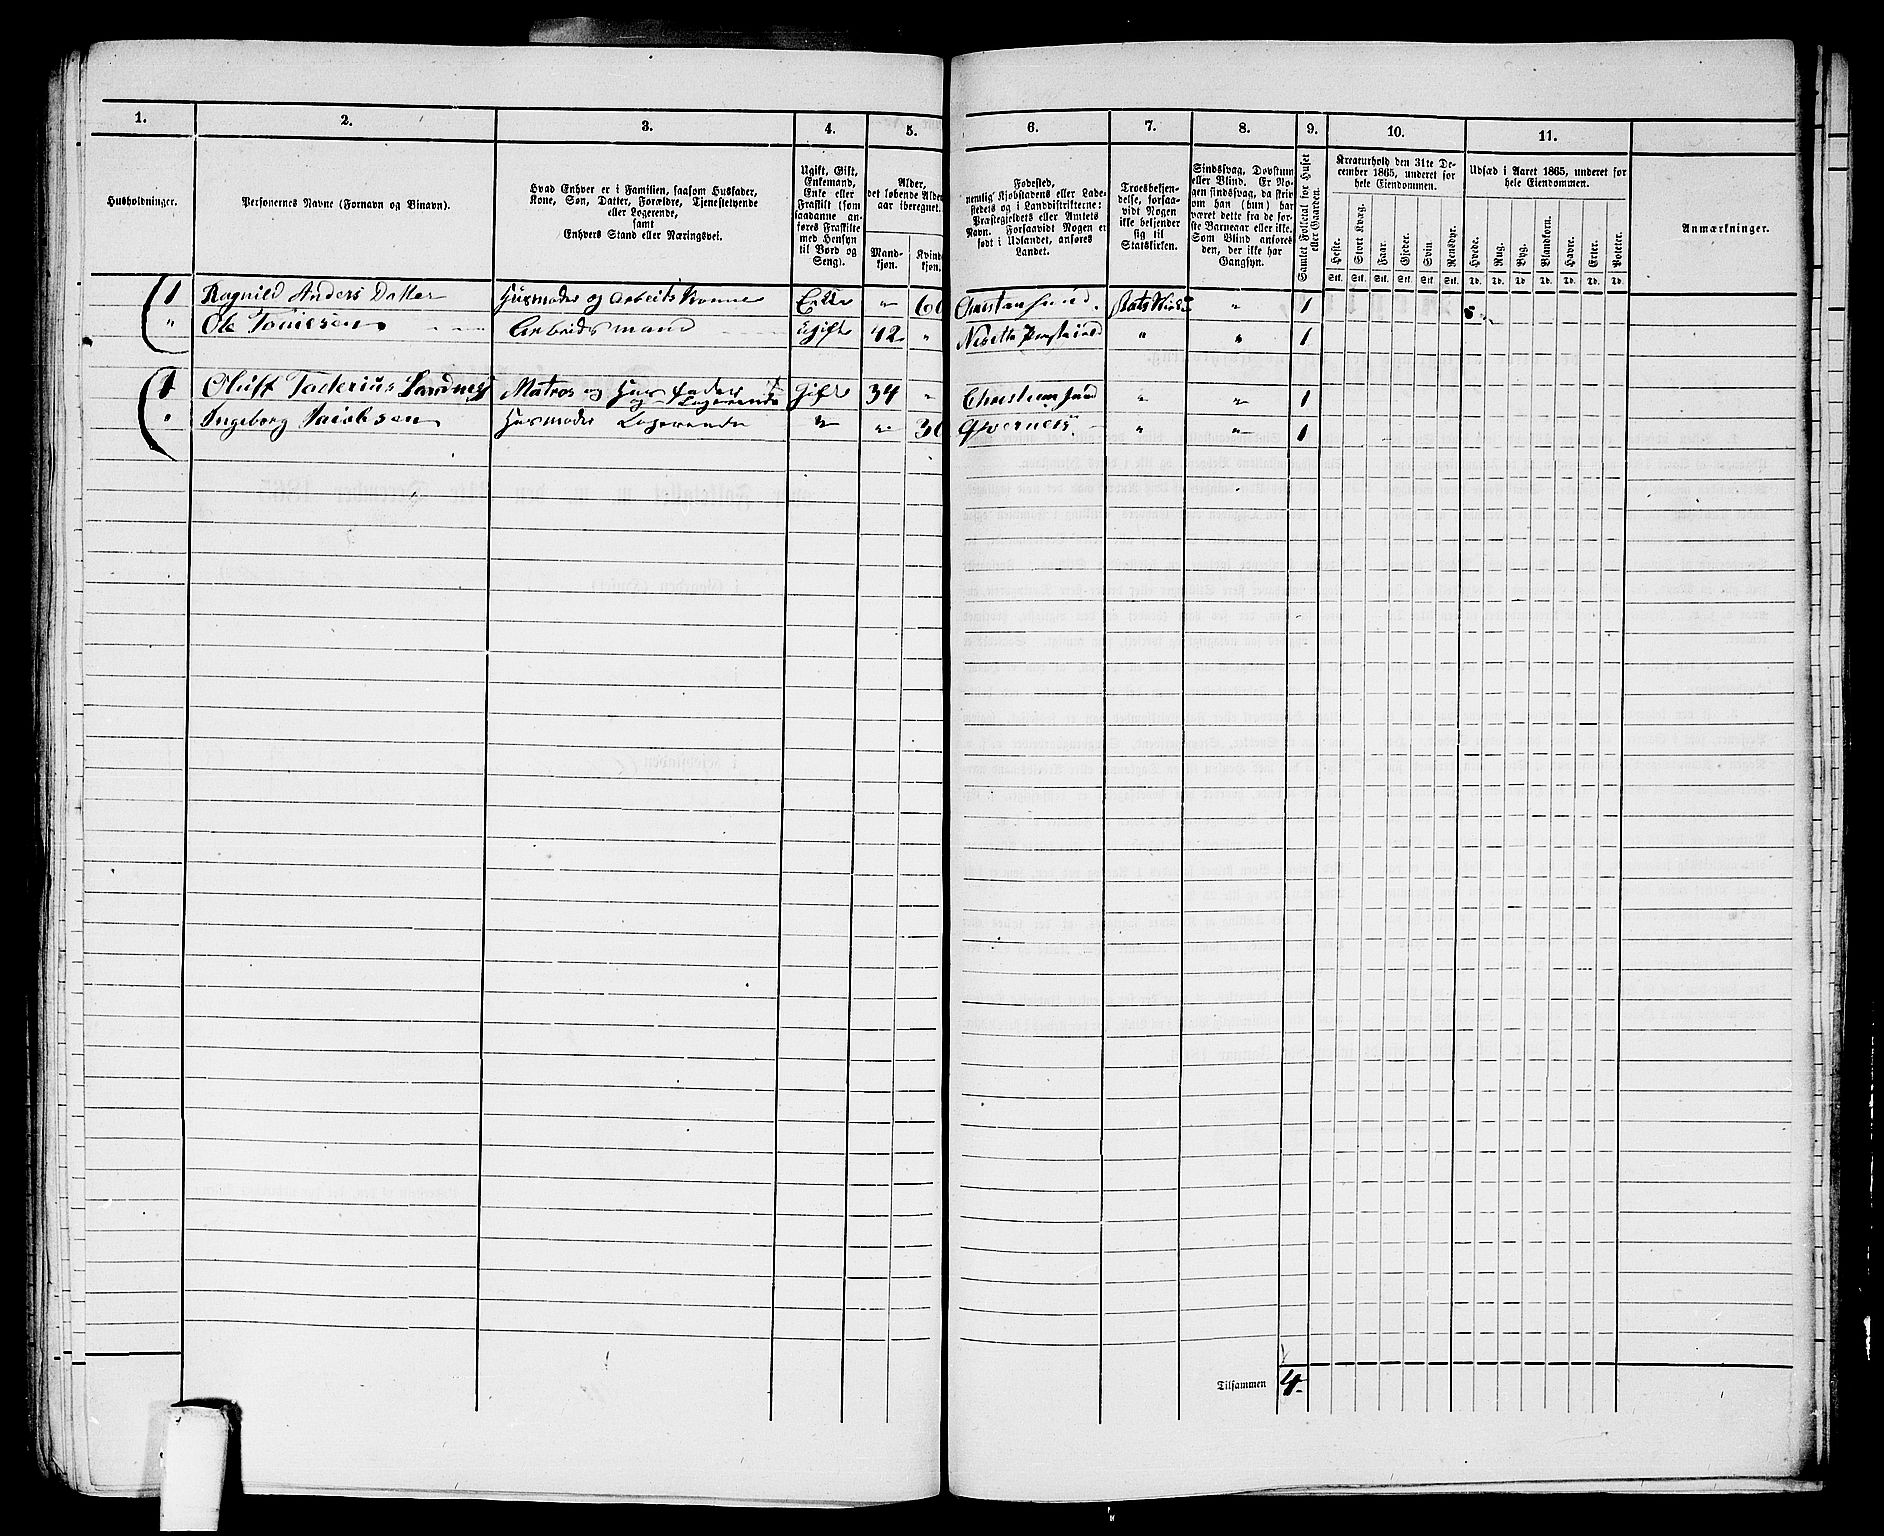 1. 2. 3. 4. 5. 6. 7. 8. 9. 10. 11.
Husholdninger.
Personernes Navne (Fornavn og Binavn).
Hvad Enhver er i Familien, saasom Husfader,
Kone, Søn, Datter, Forældre, Tjenestetyende
eller Logerende,
samt
Enhvers Stand eller Næringsvei.
Ugift, Gift,
Enkemand,
Enke eller
Fraskilt (som
saadanne an-
føres Fraskilte
med Hensyn
til Bord og
Seng).
Alder,
det løbende Alders-
aar iberegnet.
Mand-
kjøn.
Kvinde-
kjøn.
Fødested,
nemlig Kjøbstadens eller Lade-
stedets og i Landdistrikterne:
Præstegjeldets eller Amtets
Navn. Forsaavidt Nogen er
født i Udlandet, anføres
Landet.
Troesbekjen-
delse, forsaa-
vidt Nogen
ikke bekjender
sig til
Statskirken.
Sindssvag, Døvstum
eller Blind. Er No-
gen sindssvag, da skri-
ves om han (hun) har
været dette fra de før-
ste Barneaar eller ikke.
Som Blind anføres
den, der ikke har
Gangsyn.
Samlet Folketal for Huset
eller Gaarden.
Kreaturhold den 31te De-
cember 1865, underet for
hele Eiendommen.
Heste. Stort Kvæg. Faar. Gjeder. Svin. Rensdyr.
Stk. Stk. Stk. Stk. Stk. Stk.
Udsæd i Aaret 1865, underet for
hele Eiendommen.
Hvede. Rug. Byg. Blandkorn. Havre. Erter. Poteter.
Td. Td. Td. Td. Td. Td. Td.
Anmærkninger.
1 Ragnild Anders Datter Husmoder og Arbeids Konne Enke " 60 Christiansund. Statskirke " 1
" Ole Ugift 42 " Nesette " " 1
Arbeidsmand
1 Oluff Landness Matros og Husfader Gift 34 " Christiansund " " 1
og Logerende
" Ingeborg Jacobsen Husmoder Logerende " " 36 Qverness. " " 1
Tilsammen 4